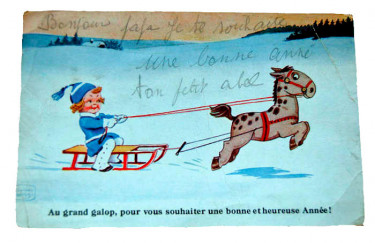 Bonjour papa je te souhaite
une bonne anné
ton petit abel
Au grand galop, pour vous souhaiter une bonne et heureuse Année !